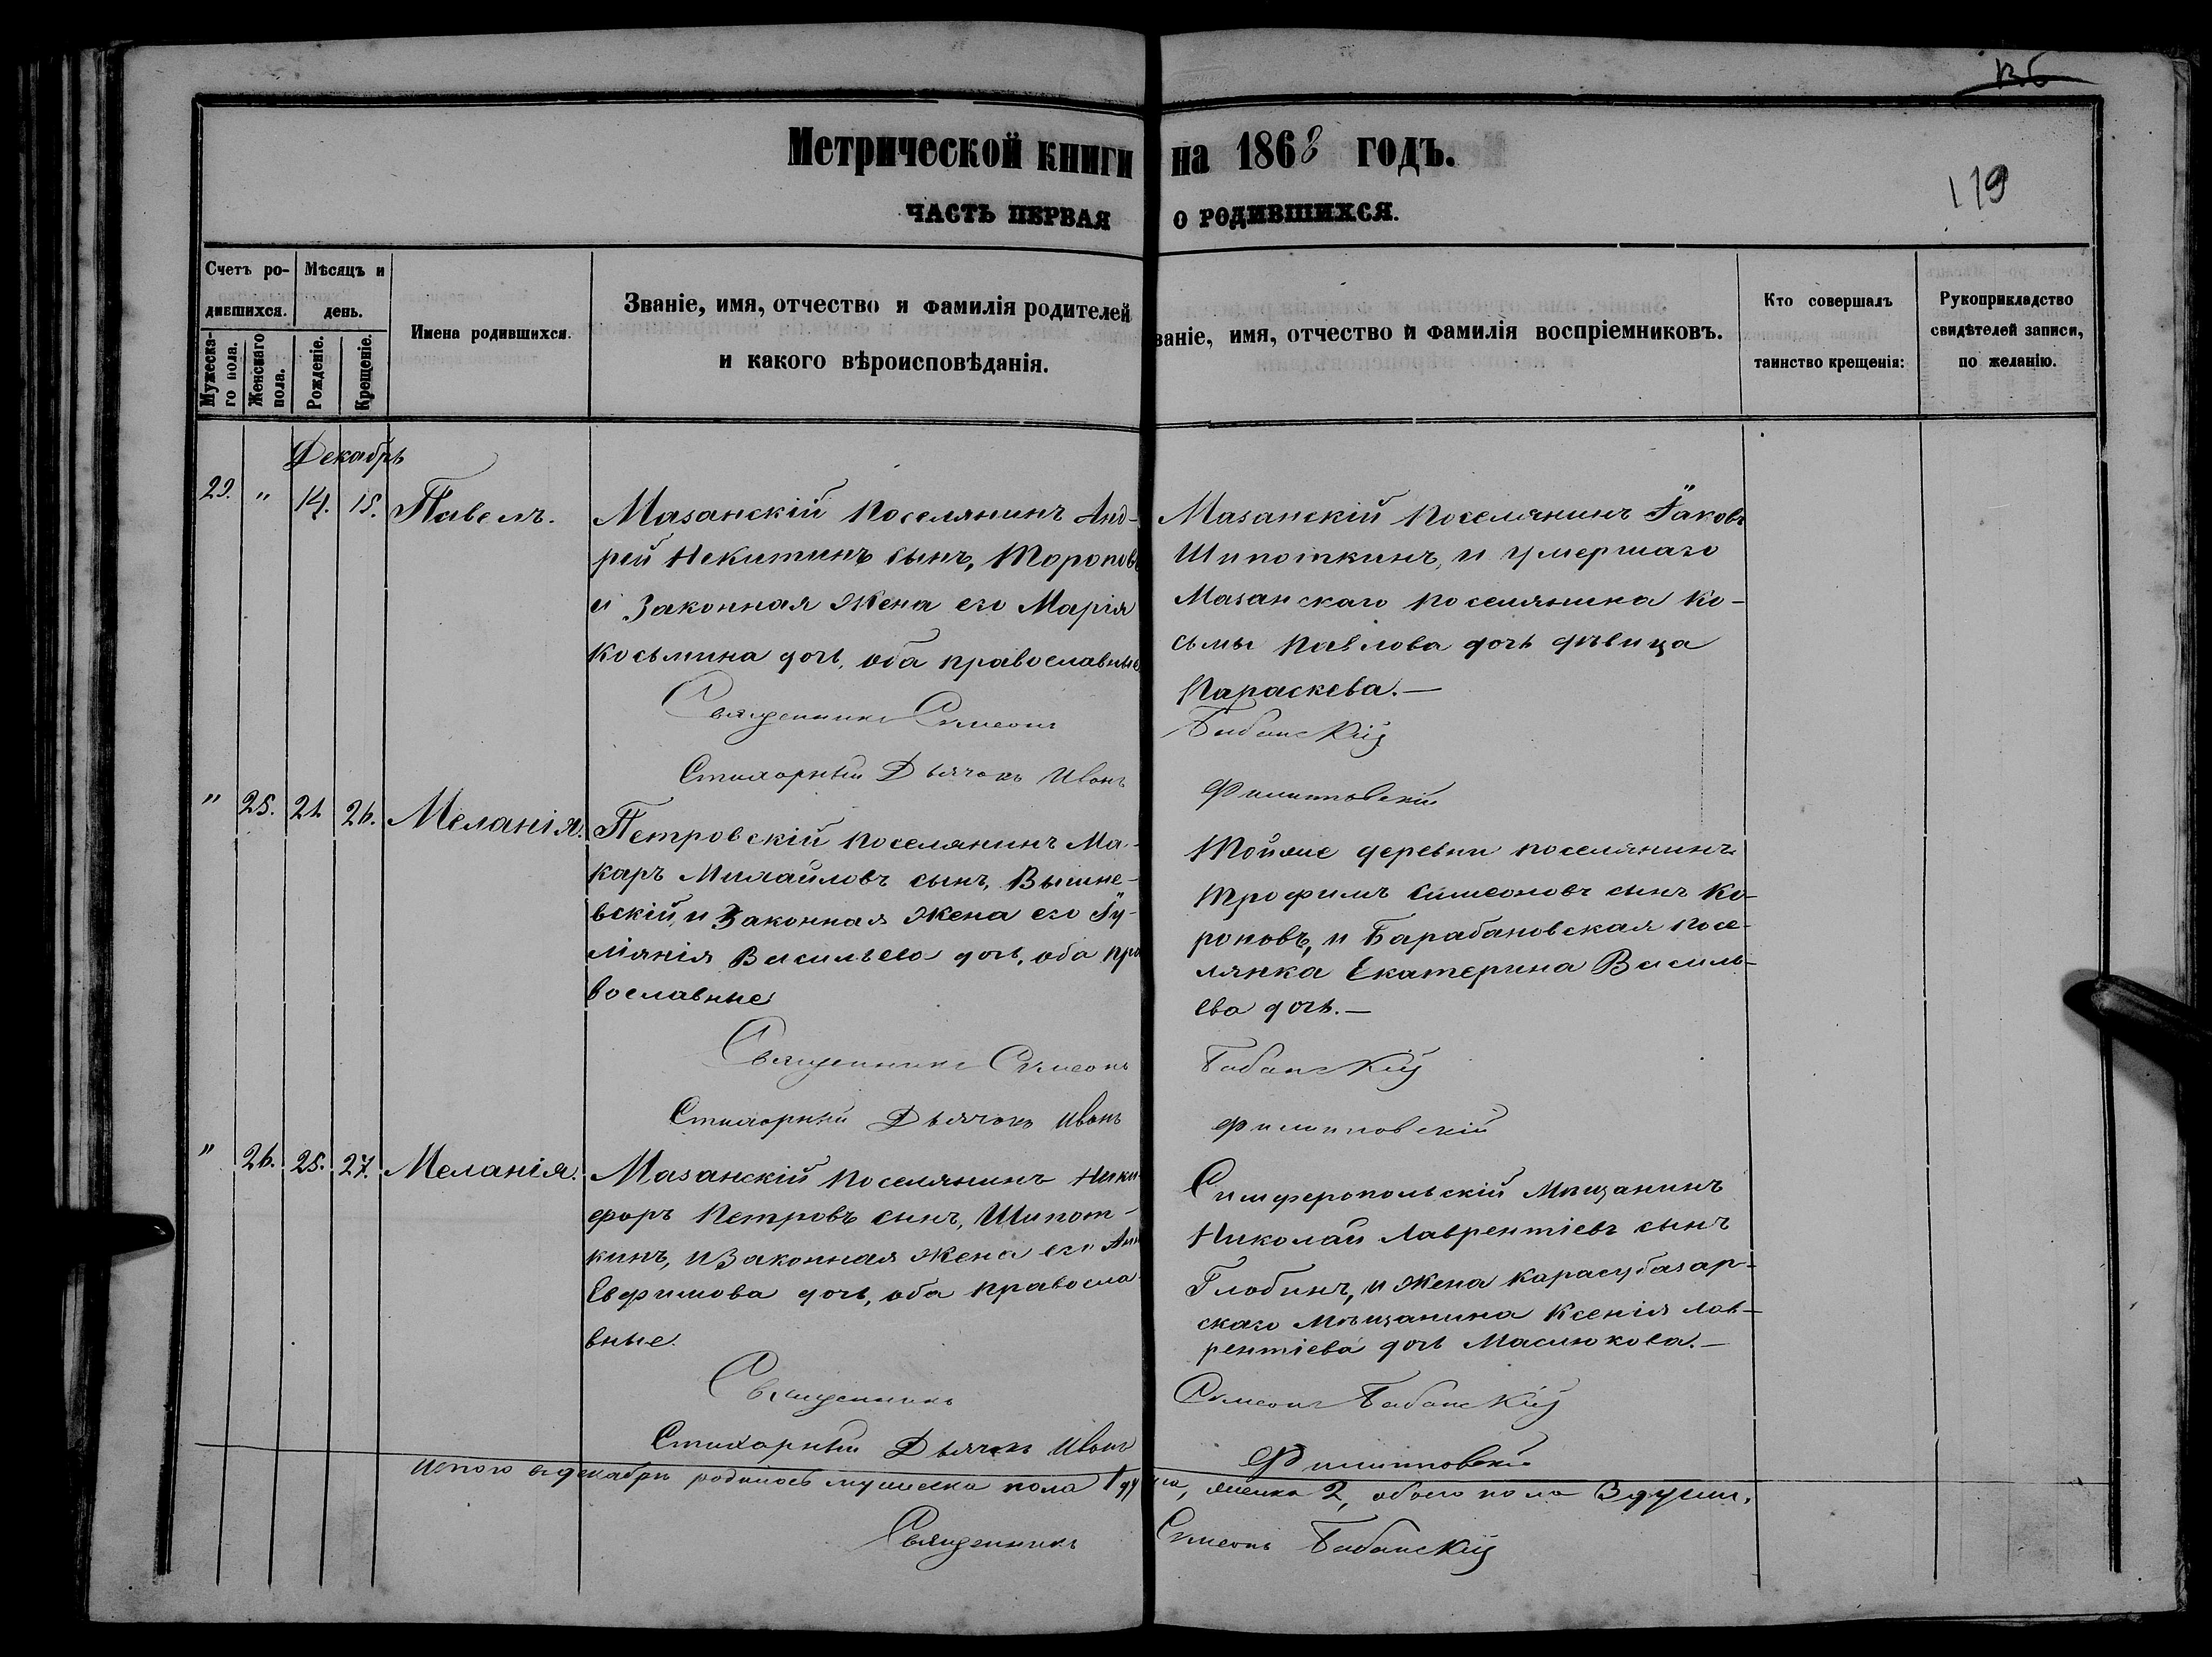 119
Метрической книги на 1868 годъ.
ЧАСТЬ ПЕРВАЯ О РОДИВШИХСЯ.
Счетъ ро-
дившихся.
Мужеска-
го пола.
Женскаго
пола.
Мѣсяцъ и
день.
Рожденіе.
Крещеніе.
Имена родившихся.
Званіе, имя, отчество и фамилія родителей
и какого вѣроисповѣданія.
званіе, имя, отчество и фамилія воспріемниковъ.
Кто совершалъ
таинство крещенія:
Рукоприкладство
свидѣтелей записи,
по желанію.
Декабрь
29. " 14. 15. Павелъ.
Мазанскій поселянинъ Анд-
рей Некитинъ сынъ, Тороповъ
и Законная жена его Марія
Косьмина дочь, оба православные
Священникъ Симеонъ
Стихарный Дьячокъ Иванъ
Мазанскій поселянинъ Іаковъ
Шипоткинъ, и умершаго
Мазанскаго поселянина Ко-
сьмы Павлова дочь дѣвица
Параскева.—
Бабанскій
Филипповскій
" 25. 21. 26. Меланія.
Петровскій поселянинъ Ма-
каръ Михайловъ сынъ, Вышне-
вскій, и Законная жена его Іу-
ліянія Васильева дочь, оба пра
вославные
Священникъ Симеонъ
Стихарный Дьячокъ Иванъ
Тойже деревни поселянинъ
Трофимъ Симеоновъ сынъ Ко-
роповъ, и Барабановская посе-
лянка Екатерина Василь-
ева дочь.—
Бабанскій
Филипповскій
" 26. 25. 27. Меланія.
Мазанскій поселянинъ Ники
форъ Петровъ сынъ, Шипот-
кинъ, и Законная жена его Анн
Евфимова дочь, оба правосла
вные.
Священникъ
Стихарный Дьячокъ Иванъ
Симферопольскій Мѣщанинъ
Николай Лаврентіевъ сынъ
Глобинъ, и жена Карасубазар-
скаго Мѣщанина Ксенія Лав-
рентіева дочь Маслюкова.—
Симеонъ Бабанскій
Филипповскій
Итого въ декабрѣ родилось мужеска пола 1 душа, женска 2, обоего пола 3 души.
Священникъ Симеонъ Бабанскій